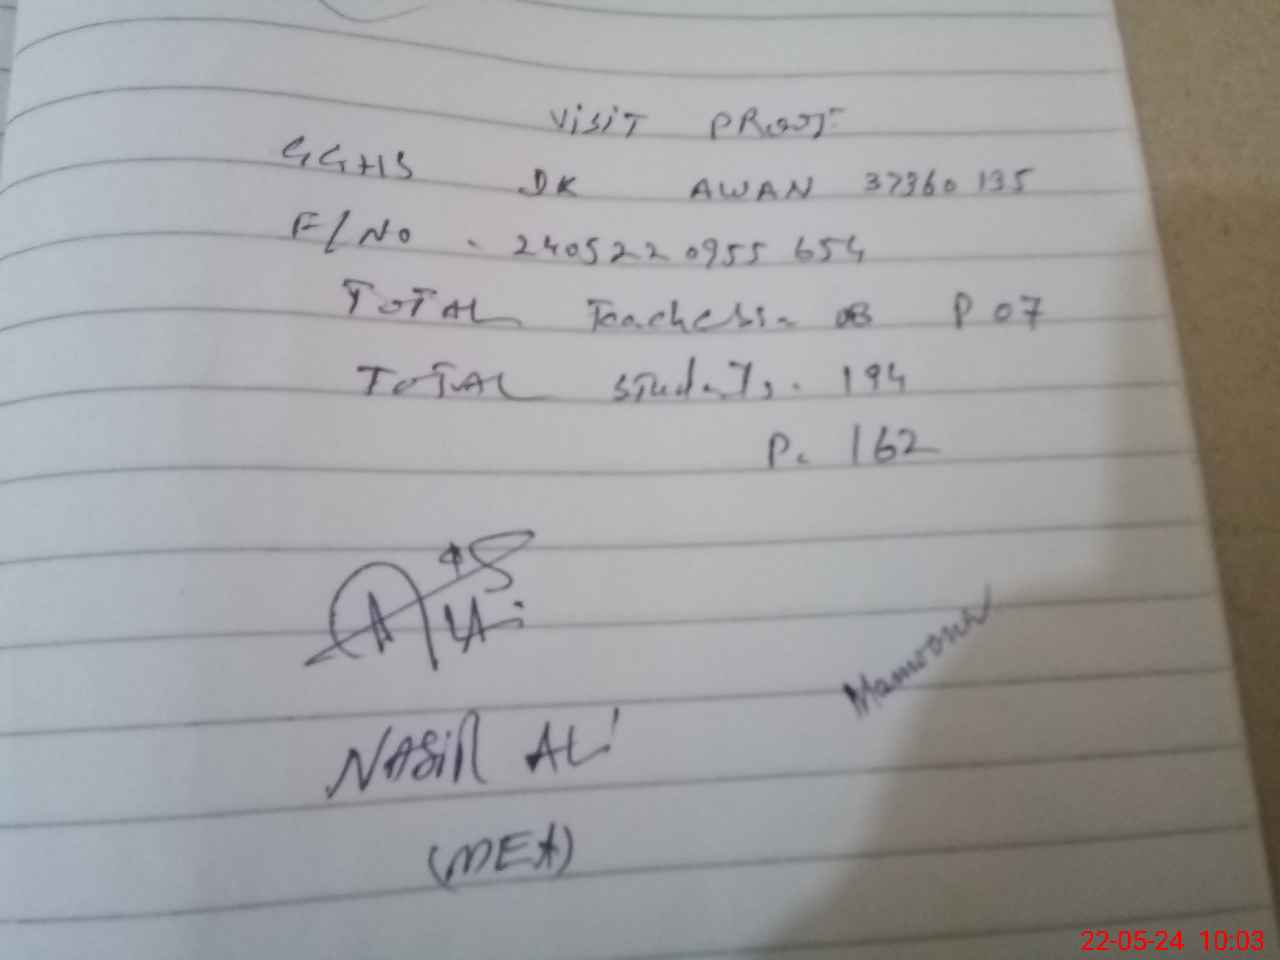 Visit PROOF
GGHS DK AWAN 37360135
F/No. 2405220955654
TOTAL Teachers. 08 P 07
TOTAL students. 194
P. 162
NASiR ALi
(MEA)
22-05-24 10:03